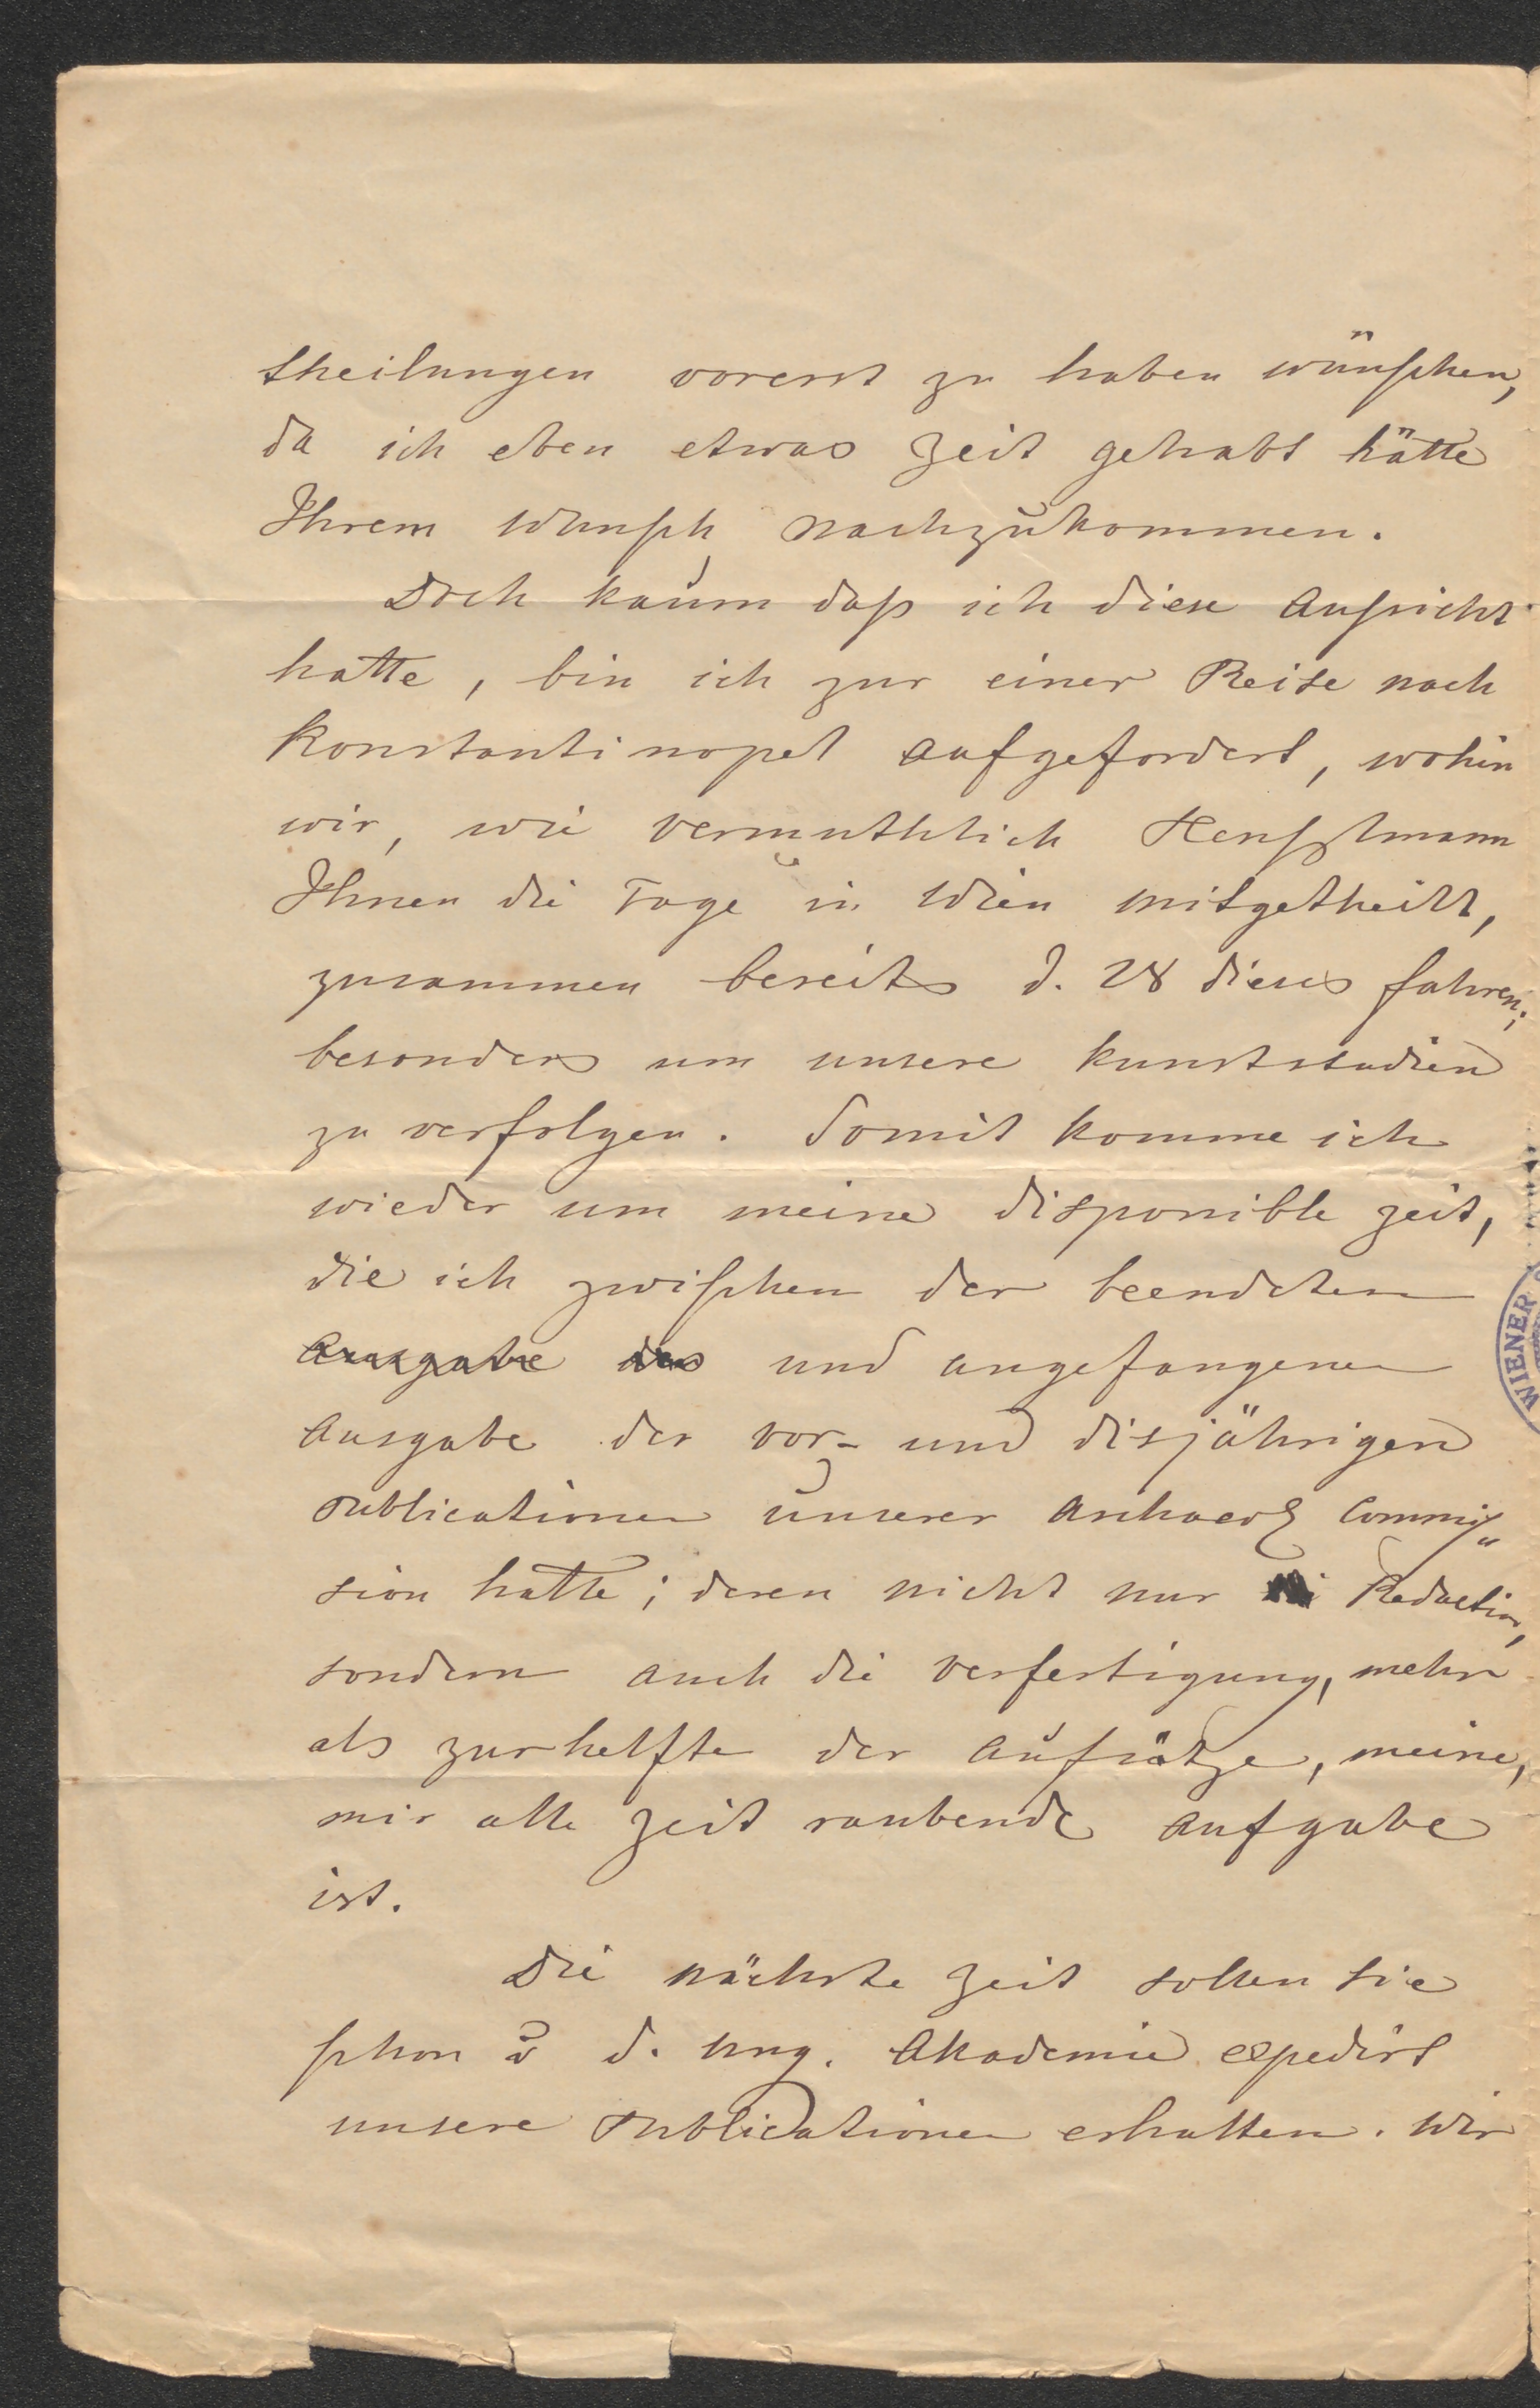 theilungen vorerst zu haben wünschen,
da ich eben etwas Zeit gehabt hätte
Ihrem Wunsch nachzukommen.
Doch kaum daß ich diese Aussicht
hatte, bin ich zur einer Reise nach
Konstantinopel aufgefordert, wohin
wir, wie vermuthlich Henszlmann
Ihnen die Tage in Wien mitgetheilt,
zusammen bereits d. 28 dieses fahren;
besonders um unsere Kunststudien
zu verfolgen. Somit komme ich
wieder um meine disponible Zeit,
die ich zwischen der beendeten
Ausgabe des und angefangenen
Ausgabe der vor- und disjährigen
Publicationen unserer Archaeol Commis„
sion hatte; deren nicht nur Redaction,
sondern auch die Verfertigung, mehr
als zur helfte der Aufsätze, meine,
mir alle Zeit raubende Aufgabe
ist.
Die nächste Zeit sollen Sie
schon v d. ung. Akademie expedirt
unsere Publicationen erhalten. Wir
WIENER